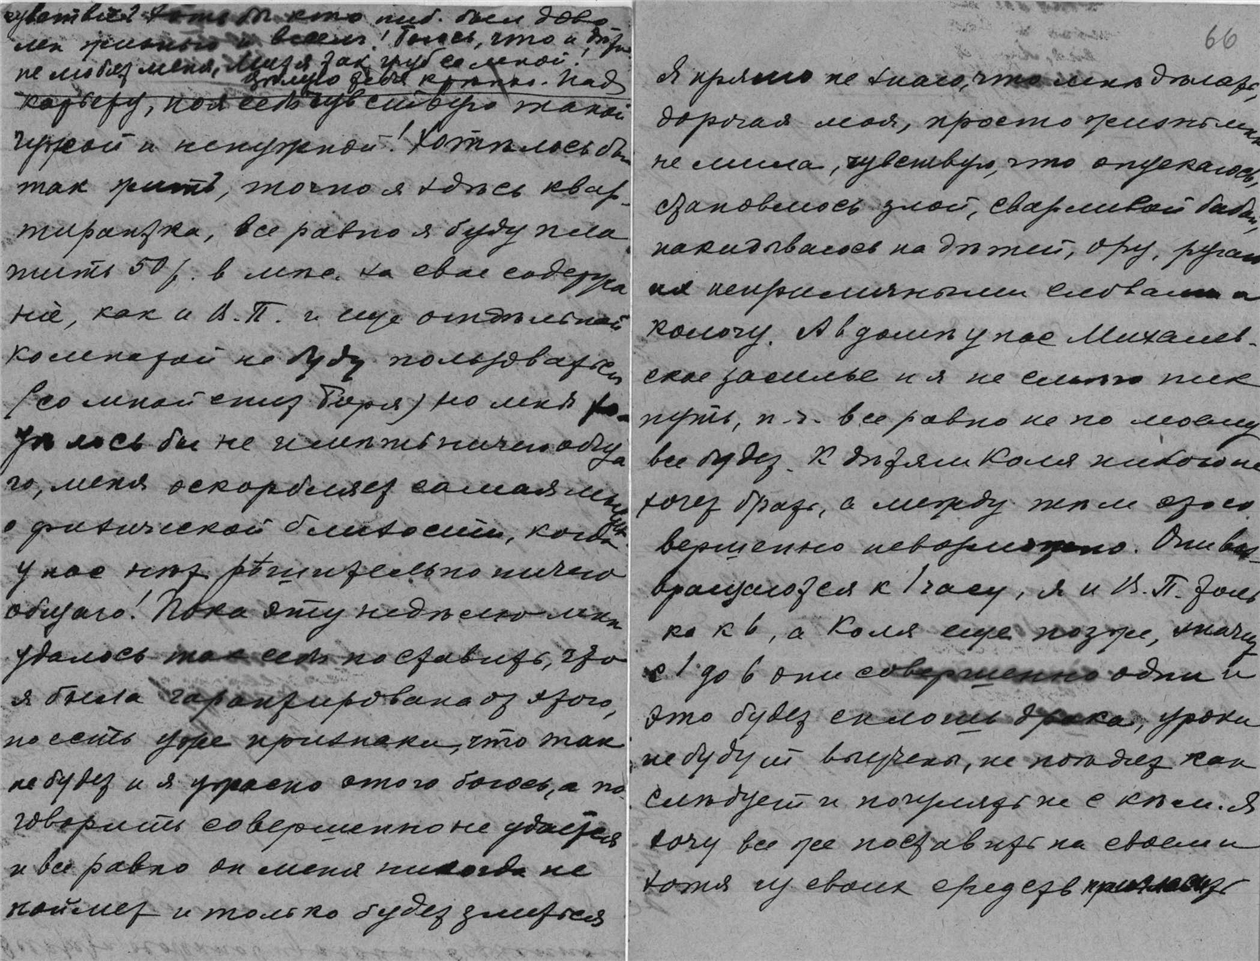 чувствіе? Хоть бы кто ниб. был дово
лен жизнью и всем! Боюсь, что и Боря
не любит меня, Митя так груб со мной!
Целую тебя крепко. Над
карьеру, поя себя чувствую такой
чужой и ненужной! Хотелось бы
так жить, точно я здѣсь квар-
тирантка, все равно я буду пла
тить 50 р. в мѣс. за свое содержа
ніе, как и В. П. и еще отдѣльной
комнатой не буду пользоваться
(со мной спит Боря) но мнѣ хо
тѣлось бы не имѣть ничего обща
го, меня оскорбляет самая мысль
о физической близости, когда
у нас нѣт рѣшительно ничего
общаго! Пока эту недѣлю мнѣ
удалось так себя поставить, что
я была гарантирована от этого,
но есть уже признаки, что так
не будет и я ужасно этого боюсь, а по
говорить совершенно не удается
и все равно он меня никогда не
поймет и только будет злиться
66
Я прямо не знаю, что мнѣ дѣлать,
дорогая моя, просто жизнь мнѣ
не мила, чувствую, что опускаюсь,
становлюсь злой, сварливой бабой,
накидываюсь на дѣтей, ору, ругаю
их неприличными словами и
колочу. А в домѣ у нас Михалев-
ское засилье и я не смѣю пик
нуть, п. ч. все равно не по моему
все будет. К дѣтям Коля никого не
хочет брать, а между тѣм это со
вершенно невозможно. Они воз
вращаются к 1 часу, я и В. П. толь
ко к 6, а Коля еще позже, значит
с 1 до 6 они совершенно одни и
это будет сплошь драка, уроки
не будут выучены, не поѣдят как
слѣдует и погулять не с кѣм. Я
хочу все же поставить на своем и
хотя из своих средств пригласить